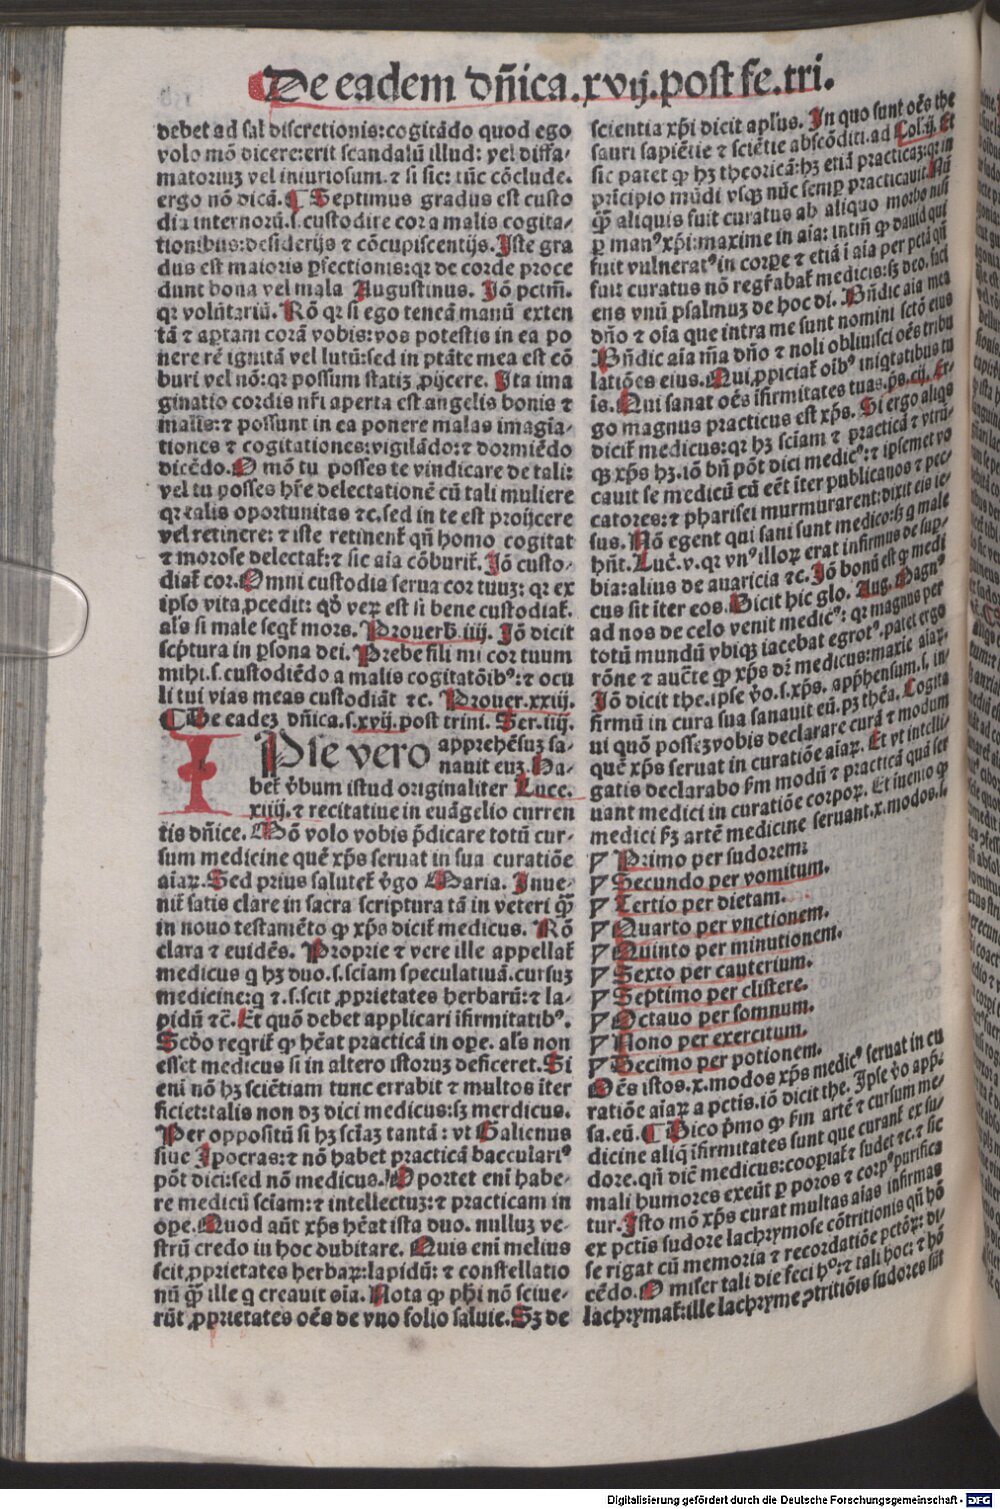 De eadem dñica.xvij.post fe.tri.
debet ad sal discretionis:cogitãdo quod ego
volo mõ dicere:erit scandalũ illud: vel diffa-
matoriuz vel iniuriosum.⁊ si sic: tũc cõclude.
ergo nõ dicã. ¶ Septimus gradus est custo
dia internorũ.s.custodire cor a malis cogita-
tionibus:desiderijs ⁊ cõcupiscentijs. Iste gra
dus est maioris ꝑfectionis:qꝛ de corde proce
dunt bona vel mala Augustinus. Iõ pctm̃.
qꝛ volũtariũ. Rõ qꝛ si ego teneã manũ exten
tã ⁊ aꝑtam corã vobis:vos potestis in ea po
nere rẽ ignitã vel lutũ:sed in ptãte mea est cõ
buri vel nõ:qꝛ possum statiz ꝓijcere. Ita ima
ginatio cordis nr̃i aperta est angelis bonis ⁊
malis:⁊ possunt in ea ponere malas imagĩa-
tiones ⁊ cogitationes:vigilãdo:⁊ dormiẽdo
dicẽdo.O mõ tu posses te vindicare de tali:
vel tu posses hr̃e delectationẽ cũ tali muliere
qꝛ talis oportunitas ⁊c.sed in te est proijcere
vel retinere: ⁊ iste retinenꝶ qñ homo cogitat
⁊ morose delectaꝶ:⁊ sic aia cõburiꝶ. Iõ custo-
diaꝶ cor.Omni custodia serua cor tuuz: qꝛ ex
ipso vita ꝓcedit: qđ veꝝ est si bene custodiaꝶ.
als si male seqꝶ mors. Prouerb̃.iiij. Iõ dicit
scp̃tura in ꝑsona dei. Prebe fili mi cor tuum
mihi.s.custodiẽdo a malis cogitatõibꝰ:⁊ ocu
li tui vias meas custodiãt ⁊c. Prouer.xxiij.
¶De eadeʒ dñica.s.xvij.post trini. Ser.iiij.
IPse vero apprehẽsuz sa-
nauit euz. Ha-
beꝶ v̾bum istud originaliter Luce.
xiiij.⁊ recitatiue in euãgelio curren
tis dñice. Mõ volo vobis p̃dicare totũ cur-
sum medicine quẽ xp̃s seruat in sua curatiõe
aiaꝝ.Sed prius saluteꝶ v̾go Maria. Inue-
niꝶ satis clare in sacra scriptura tã in veteri qꝫ̃
in nouo testamẽto ꝙ xp̃s diciꝶ medicus. Rõ
clara ⁊ euidẽs. Proprie ⁊ vere ille appellaꝶ
medicus q hꝫ duo.s.sciam speculatiuã.cursuz
medicine:q ⁊.s.scit ꝓprietates herbarũ:⁊ la-
pidũ ⁊c̃.Et quõ debet applicari ĩfirmitatibꝰ.
Scđo reqriꝶ ꝙ hẽat practicã in oꝑe. als non
esset medicus si in altero istoruz deficeret.Si
eni nõ hꝫ sciẽtiam tunc errabit ⁊ multos ĩter
ficiet:talis non dꝫ dici medicus:sꝫ merdicus.
Per oppositũ si hꝫ sciaz tantã: vt Galienus
siue Ipocras:⁊ nõ habet practicã baccularꝰ
põt dici:sed nõ medicus. Oportet eni habe-
re medicũ sciam:⁊ intellectuz:⁊ practicam in
oꝑe.Quod aũt xp̃s hẽat ista duo. nulluz ve-
strũ credo in hoc dubitare. Quis eni melius
scit ꝓprietates herbaꝝ:lapidũ: ⁊ constellatio
nũ qꝫ̃ ille q creauit oia. Nota ꝙ phi nõ sciue-
rũt ꝓprietates oẽs de vno folio saluie.Sꝫ de
scientia xp̃i dicit apl̃us. In quo sunt oẽs the
sauri sapiẽtie ⁊ sciẽtie abscõditi.ad Col.ij. Et
sic patet ꝙ hꝫ theoricã:hꝫ etiã practicaz:qꝛ in
prĩcipio mũdi vsqꝫ nũc semꝑ practicauit. Nũ
qꝫ̃ aliquis fuit curatus ab aliquo morbo nisi
ꝑ manꝰ xp̃i:maxime in aia: intm̃ ꝙ dauid qui
fuit vulneratꝰ in corꝑe ⁊ etiã ĩ aia per pctã qñ
fuit curatus nõ regr̃abaꝶ medicis:sꝫ deo. faci
ens vnũ psalmuz de hoc di. Bñdic aia mea
dño ⁊ oĩa que intra me sunt nomini scto eius
Bñdic aĩa m̃a dño ⁊ noli obliuisci oẽs tribu
latiões eius.Qui ꝓpiciaꝶ oĩbꝰ iniqtatibus tu
is. Qui sanat oẽs ĩfirmitates tuas.ps.cij. Er-
go magnus practicus est xp̃s. Si ergo aliqs
diciꝶ medicus:qꝛ hꝫ sciam ⁊ practicã ⁊ vtrũ-
qꝫ xp̃s hꝫ.iõ bñ põt dici medicꝰ:⁊ ipsemet vo
cauit se medicũ cũ eẽt ĩter publicanos ⁊ pec-
catores:⁊ pharisei murmurarent:dixit eis ie-
sus. Nõ egent qui sani sunt medico:sꝫ q male
hñt. Luc̃.v.qꝛ vnꝰ illoꝝ erat infirmus de sup̃-
bia:alius de auaricia ⁊c. Iõ bonũ est ꝙ medi
cus sit ĩter eos. Dicit hic glo. Aug. Magnꝰ
ad nos de celo venit medicꝰ: qꝛ magnus per
totũ mundũ vbiqꝫ iacebat egrotꝰ.patet ergo
rõne ⁊ aucte ꝙ xp̃s dꝛ medicus:maxie aiaꝝ.
Iõ dicit the.ipse v̾o.s.xp̃s. app̃hensum.s. in-
firmũ in cura sua sanauit eũ.pꝫ thẽa. Cogita
ui quõ posseʒ vobis declarare curã ⁊ modum
quẽ xp̃s seruat in curatiõe aiaꝝ. Et vt intelli-
gatis declarabo fm modũ ⁊ practicã quã ser
uant medici in curatiõe corpoꝝ. Et inuenio ꝙ
medici fꝫ artẽ medicine seruant.x.modos.s.
¶ Primo per sudorem:
¶ Secundo per vomitum.
¶ Tertio per dietam.
¶ Quarto per vnctionem.
¶ Quinto per minutionem.
¶ Sexto per cauterium.
¶ Septimo per clistere.
¶ Octauo per somnum.
¶ Nono per exercitum.
¶ Decimo per potionem.
Oẽs istos.x.modos xp̃s medicꝰ seruat in cu
ratiõe aiaꝝ a pctis.iõ dicit the. Ipse v̾o app̃.
sa.eũ. ¶ Dico p̃mo ꝙ fm artẽ ⁊ cursum me-
dicine aliq̃ ĩfirmitates sunt que curanꝶ ex su-
dore.qñ dic̃ medicus:cooꝑiaꝶ ⁊ sudet ⁊c.⁊ sic
mali humores exeũt ꝑ poros ⁊ corpꝰ purifica
tur.Isto mõ xp̃s curat multas aias infirmas
ex pctis sudore lachrymose cõtritionis qñ hõ
se rigat cũ memoria ⁊ recordatiõe pctõꝝ: di-
cẽdo. O miser tali die feci hꝰ:⁊ tali hoc: ⁊ hõ
lachrymaꝶ:ille lachryme ꝯtritiõis sudores sũt
Digitalisierung gefördert durch die Deutsche Forschungsgemeinschaft - DFG